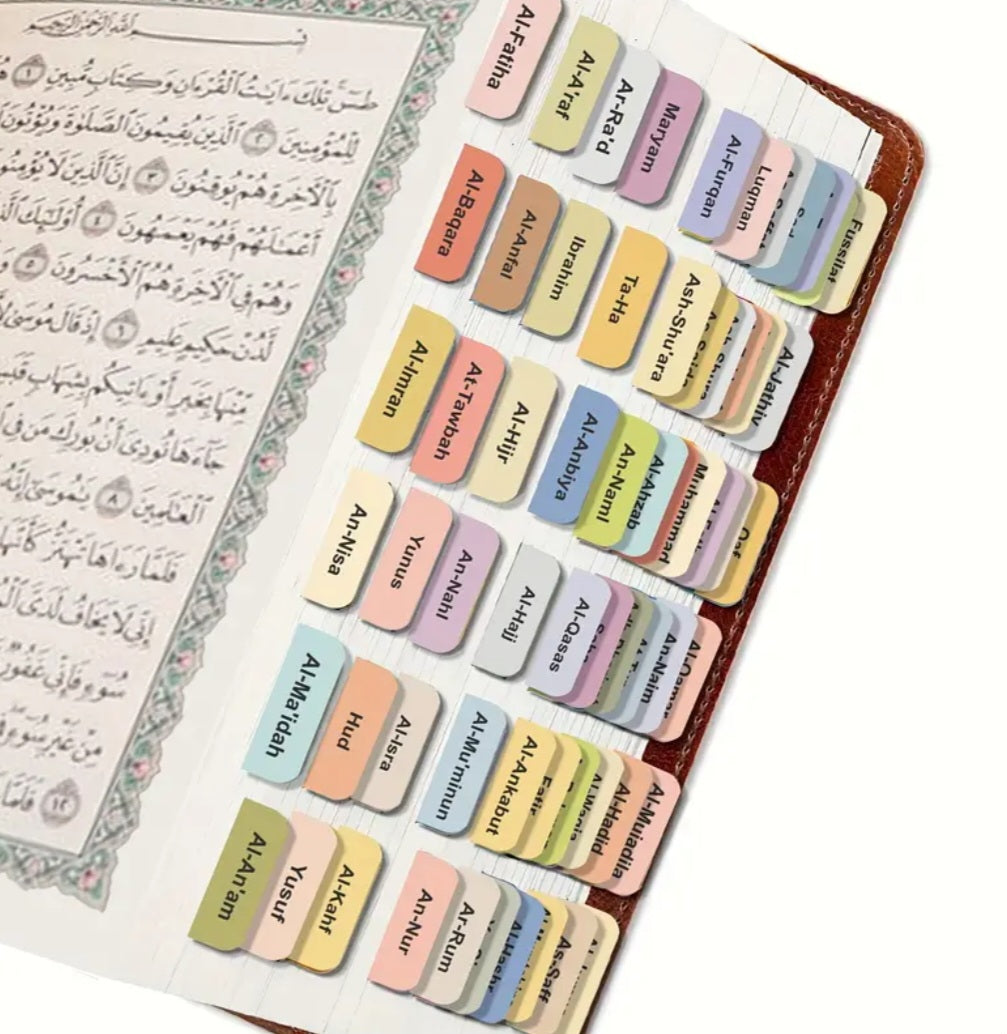 بِسْمِ ٱللَّهِ ٱلرَّحْمَٰنِ ٱلرَّحِيمِ
طسٓ تِلْكَ ءَايَٰتُ ٱلْقُرْءَانِ وَكِتَابٍ مُّبِينٍ ١
لِلْمُؤْمِنِينَ ٢ ٱلَّذِينَ يُقِيمُونَ ٱلصَّلَوٰةَ وَيُؤْتُونَ
بِٱلْءَاخِرَةِ هُمْ يُوقِنُونَ ٣ إِنَّ ٱلَّذِينَ لَا
أَعْمَٰلَهُمْ فَهُمْ يَعْمَهُونَ ٤ أُوْلَٰٓئِكَ
وَهُمْ فِى ٱلْءَاخِرَةِ هُمُ ٱلْأَخْسَرُونَ ٥
لَّدُنْ حَكِيمٍ عَلِيمٍ ٦ إِذْ قَالَ مُوسَىٰ
مِّنْهَا بِخَبَرٍ أَوْ ءَاتِيكُم بِشِهَابٍ
جَآءَهَا نُودِىَ أَنۢ بُورِكَ مَن فِى
ٱلْعَٰلَمِينَ ٨ يَٰمُوسَىٰٓ إِنَّهُۥ
فَلَمَّا رَءَاهَا تَهْتَزُّ كَأَنَّهَا
إِنِّى لَا يَخَافُ لَدَىَّ
سُوٓءٍ فَإِنِّى غَفُورٌ
مِنْ غَيْرِ سُوٓءٍ
١٢ فَلَمَّا
Al-Fatiha
Al-A'raf
Ar-Ra'd
Maryam
Al-Furqan
Luqman
Fussilat
Al-Baqara
Al-Anfal
Ibrahim
Ta-Ha
Ash-Shu'ara
Al-Jathiy
Al-Imran
At-Tawbah
Al-Hijr
Al-Anbiya
An-Naml
Al-Ahzab
Muhammad
Qaf
An-Nisa
Yunus
An-Nahl
Al-Hajj
Al-Qasas
An-Najm
Al-Qamar
Al-Ma'idah
Hud
Al-Isra
Al-Mu'minun
Al-Ankabut
Fatir
Al-Hadid
Al-Mujadila
Al-An'am
Yusuf
Al-Kahf
An-Nur
Ar-Rum
Al-Hashr
As-Saff